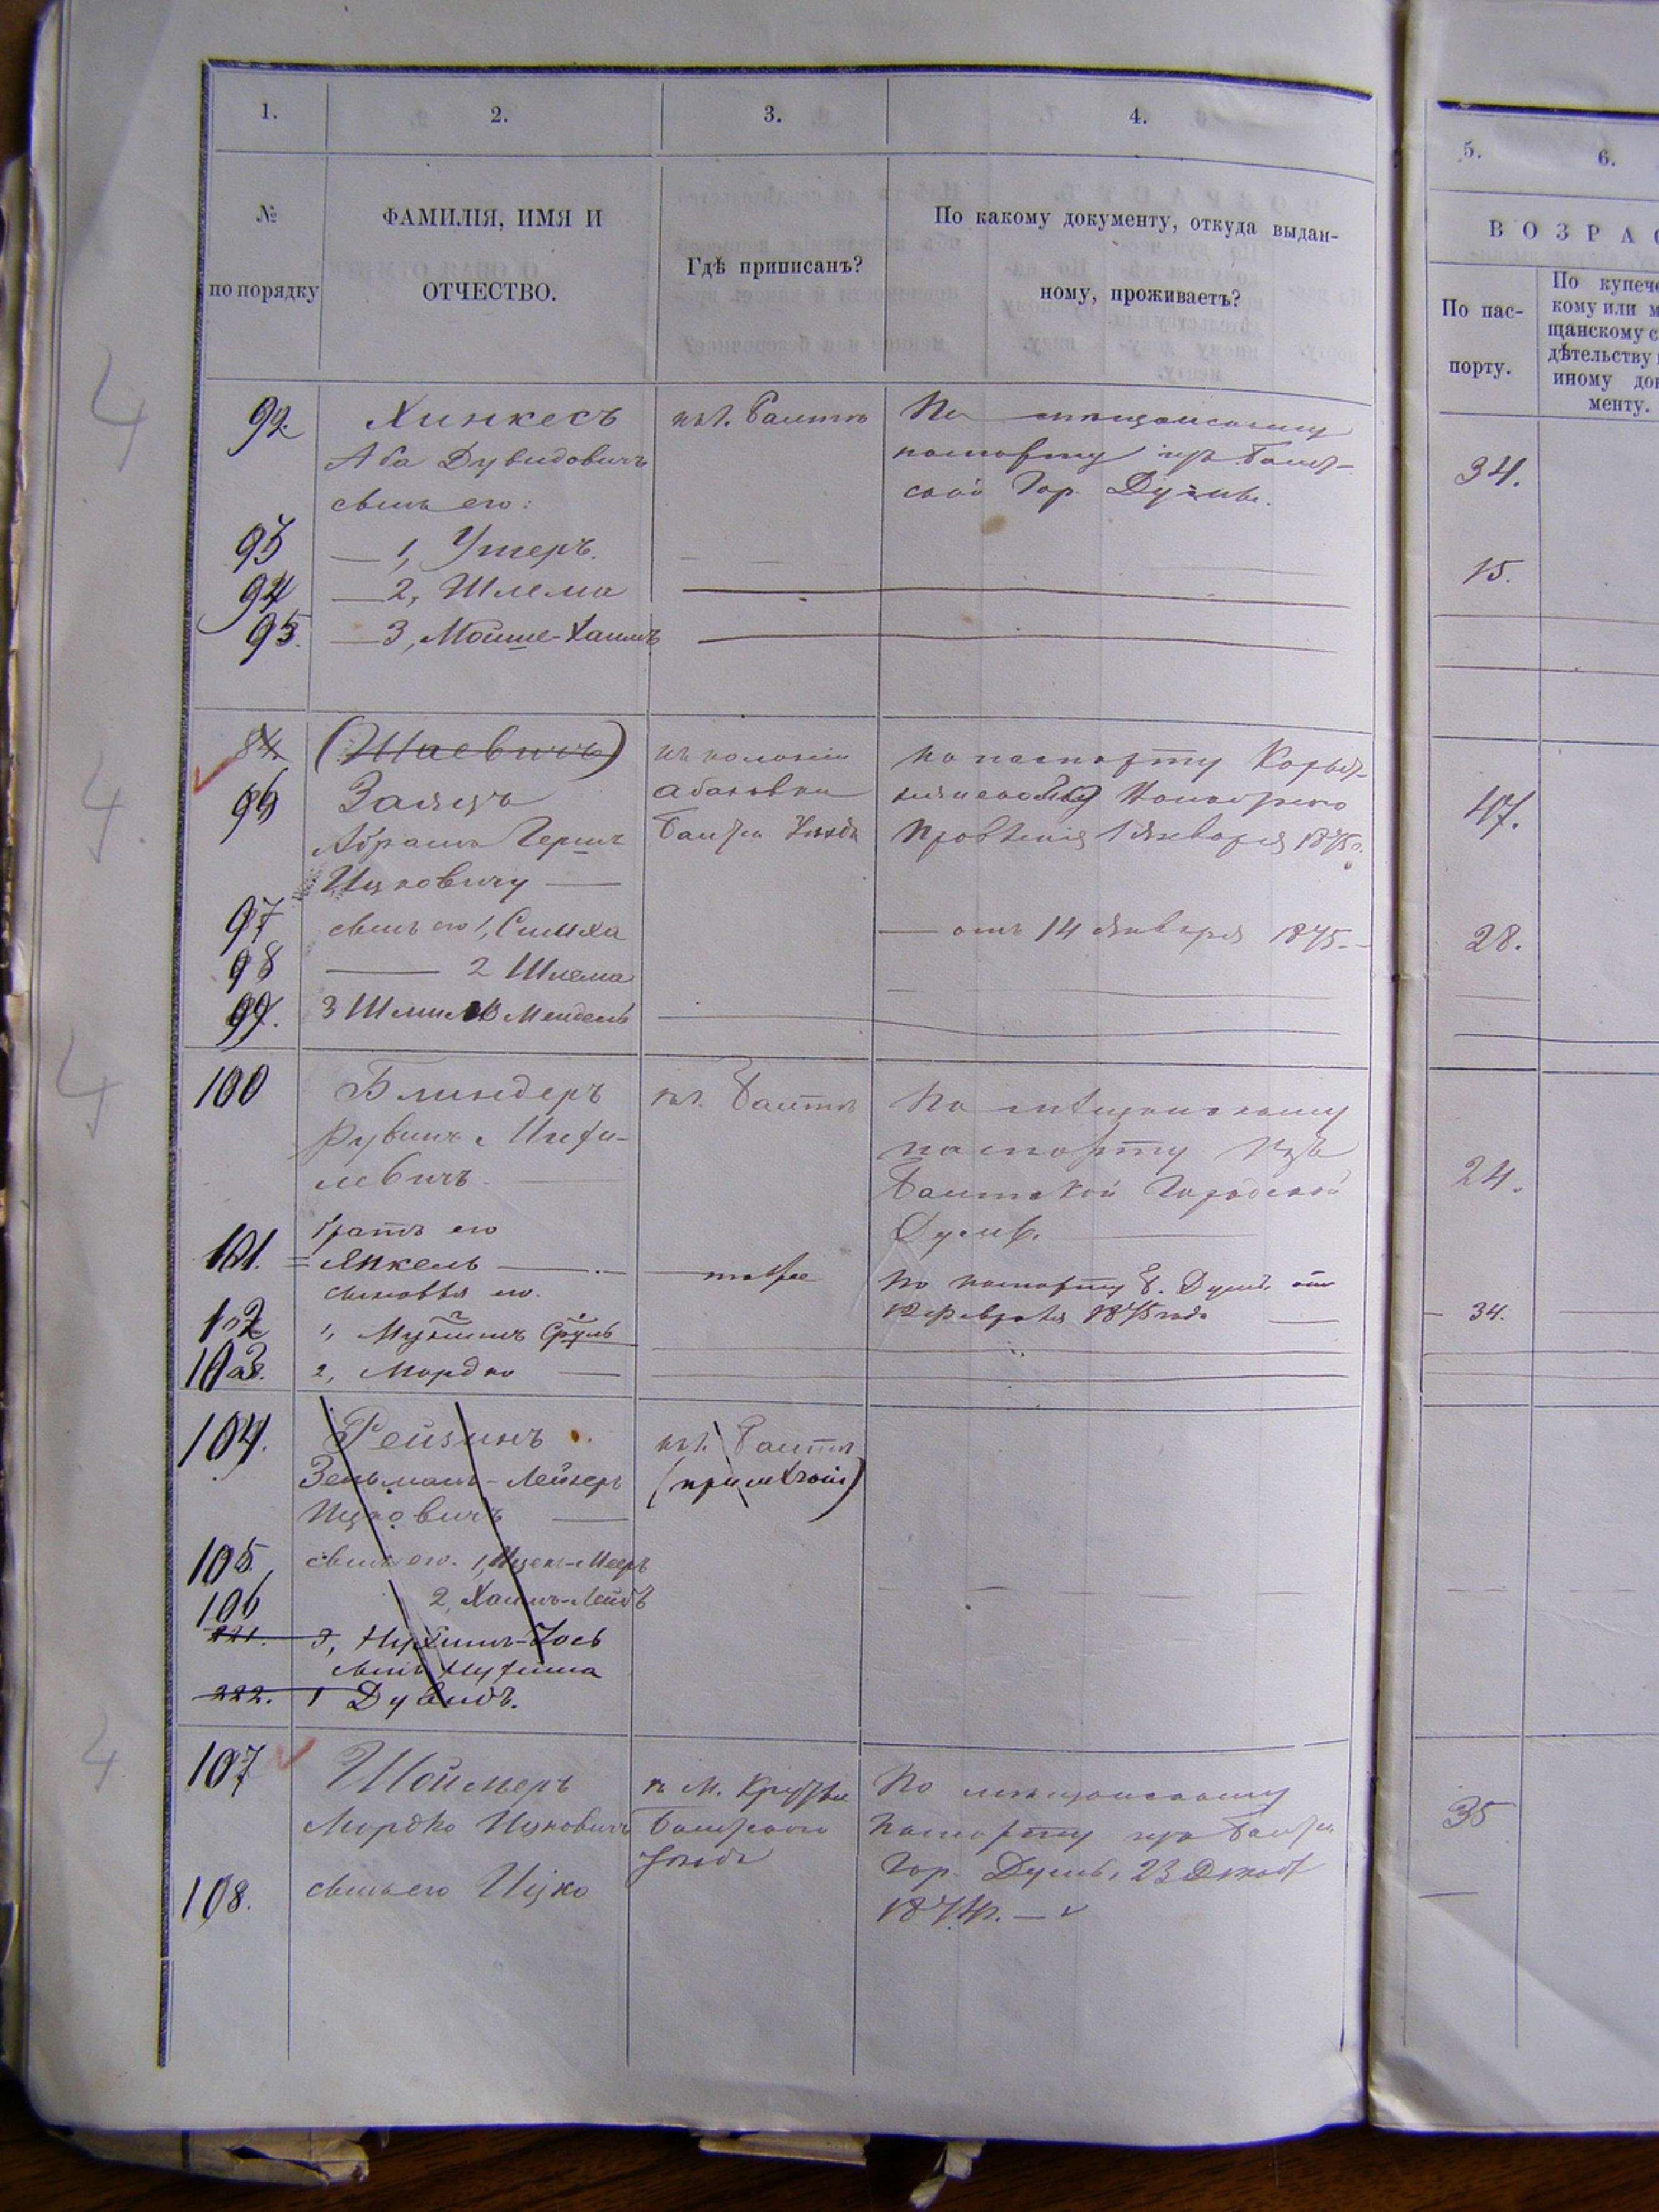 1. 2. 3. 4.
5. 6.
№
по порядку
ФАМИЛІЯ, ИМЯ И
ОТЧЕСТВО.
Гдѣ приписанъ?
По какому документу, откуда выдан-
ному, проживаетъ?
ВОЗРАС
По пас-
порту.
По купече
кому или м
щанскому с
дѣтельству
иному док
менту.
92 Хинкесъ
Аба Дувидовичъ
сынъ его:
въ г. Балтѣ
По мѣщанскому
паспорту изъ Балт-
ской Гор. Думы.
34.
93 — 1, Ушеръ. 15.
94 — 2, Шлема
95. — 3, Мойше-Хаимъ
84. (Шаевичъ)
96 Заяцъ
Абрамъ Гершъ
Ицковичу —
въ колоніи
Абазовки
Балт. Уѣзда
по паспорту
1 Января 1875 г.
47.
97 сынъ его 1, Симха — отъ 14 Января 1875. — 28.
98 — 2 Шлема
99. 3 Шмилъ Мендель
100 Блиндеръ
Рувинъ
левичъ —
въ г. Балтѣ
По мѣщанскому
паспорту изъ
Балтской Городской
Думы. —
24.
братъ его
101. Янкель — — тоже
По паспорту Б. Думы отъ
12 Февраля 1875 года
34.
сыновья его.
102 1, Сруль
103. 2, Мордко —
104. Рейзинъ
Зельманъ-Лейзеръ
Ицковичъ —
въ г. Балтѣ
105. сынъ его. 1, Ицекъ-Мееръ
106 2, Хаимъ-Лейбъ
221. 3, Нухимъ-Іось
сынъ Нухима
222. 1 Дувидъ.
107 Шоймеръ
Мордко Ицковичъ
въ М. Крутые
Балтскаго
Уѣзда
По мѣщанскому
паспорту изъ Балт.
Гор. Думы, 23 Декаб.
1874 г. —
35
108. сынъ его Ицко
4
4
4
4